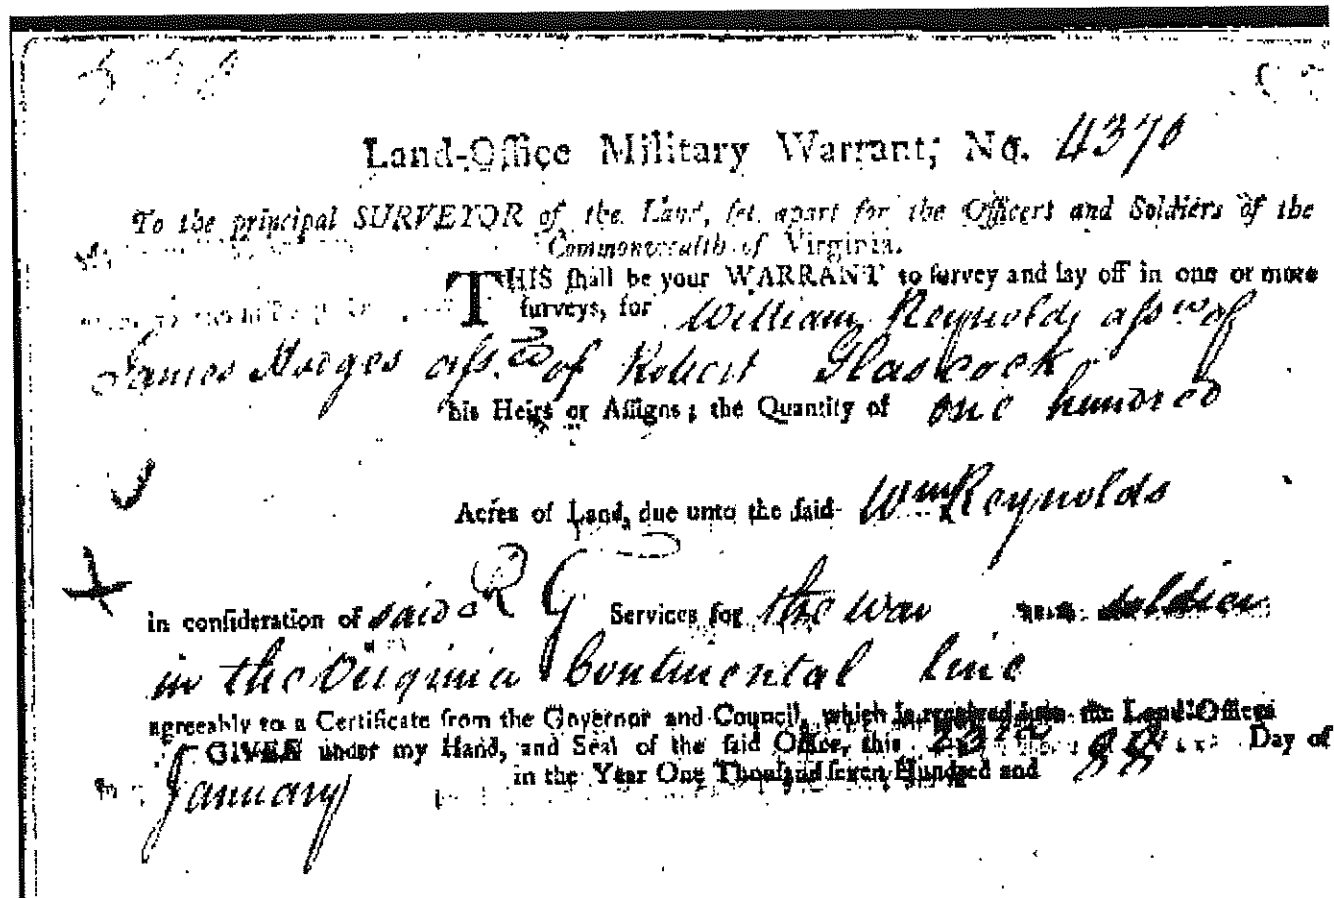 Land-Office Military Warrant, No. 4370
To the principal SURVEYOR of the Land, ſet apart for the Officers and Soldiers of the
Commonwealth of Virginia.
THIS ſhall be your WARRANT to ſurvey and lay off in one or more
ſurveys, for William Reynolds aſsee of
James aſsee of Robert Glascock
his Heirs or Aſſigns; the Quantity of one hundred
Acres of Land, due unto the ſaid Wm Reynolds
in conſideration of said R G Services for the war as a soldier
in the Virginia Continental line
agreeably to a Certificate from the Governor and Council, which is received into the Land-Office.
GIVEN under my Hand, and Seal of the ſaid Office, this 23rd Day of
January in the Year One Thouſand ſeven Hundred and 88